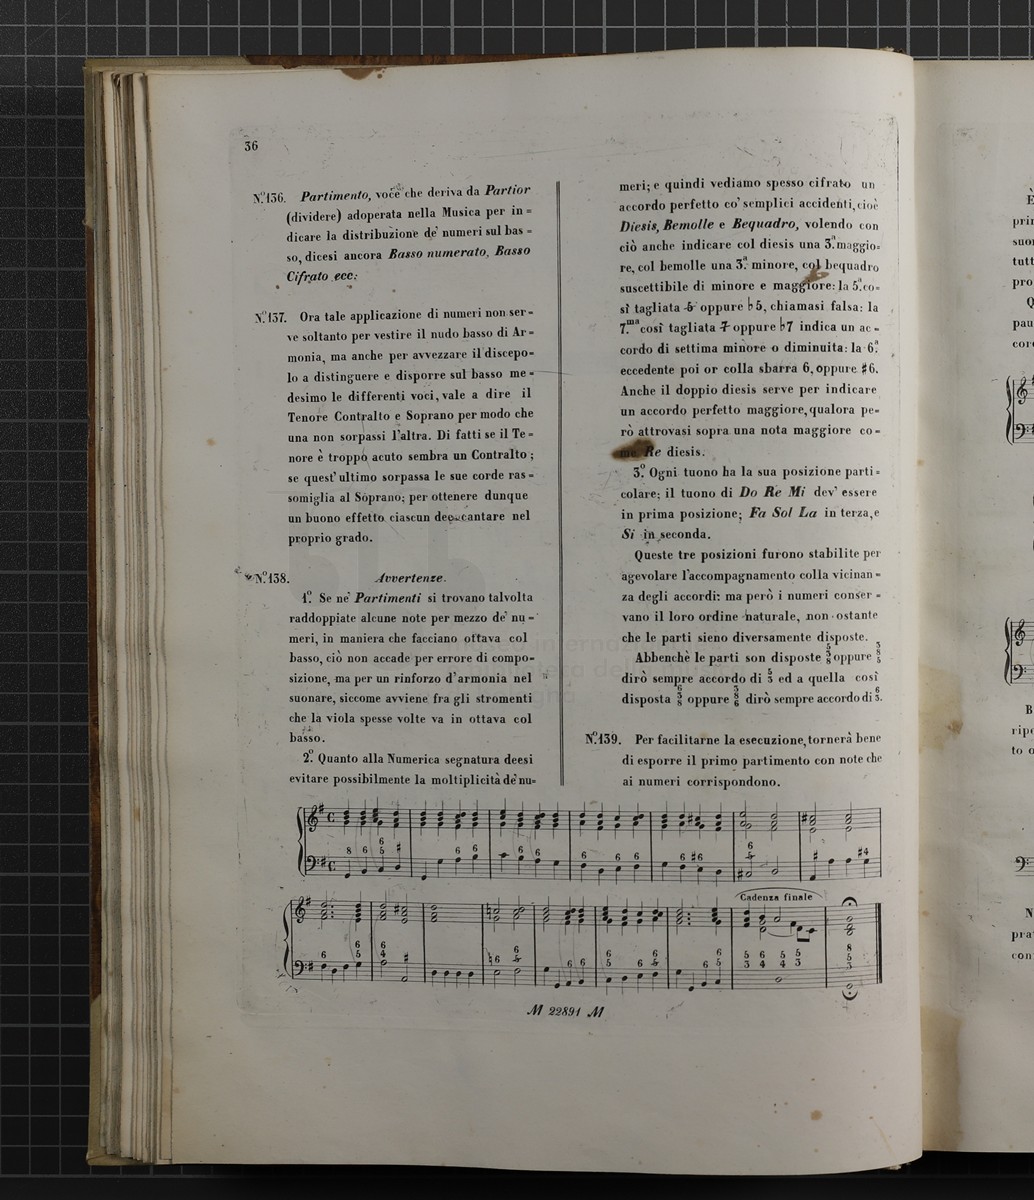 36
N.º 136. Partimento, voce che deriva da Partior
(dividere) adoperata nella Musica per in=
dicare la distribuzione de' numeri sul bas=
so, dicesi ancora Basso numerato, Basso
Cifrato ecc:
N.º 137. Ora tale applicazione di numeri non ser=
ve soltanto per vestire il nudo basso di Ar=
monia, ma anche per avvezzare il discepo=
lo a distinguere e disporre sul basso me=
desimo le differenti voci, vale a dire il
Tenore Contralto e Soprano per modo che
una non sorpassi l'altra. Di fatti se il Te=
nore è troppo acuto sembra un Contralto;
se quest'ultimo sorpassa le sue corde ras=
somiglia al Soprano; per ottenere dunque
un buono effetto ciascun dee cantare nel
proprio grado.
N.º 138. Avvertenze.
1.º Se ne' Partimenti si trovano talvolta
raddoppiate alcune note per mezzo de' nu=
meri, in maniera che facciano ottava col
basso, ciò non accade per errore di compo=
sizione, ma per un rinforzo d'armonia nel
suonare, siccome avviene fra gli stromenti
che la viola spesse volte va in ottava col
basso.
2.º Quanto alla Numerica segnatura deesi
evitare possibilmente la moltiplicità de' nu=
meri; e quindi vediamo spesso cifrato un
accordo perfetto co' semplici accidenti, cioè
Diesis, Bemolle e Bequadro, volendo con
ciò anche indicare col diesis una 3.ª maggio=
re, col bemolle una 3.ª minore, col bequadro
suscettibile di minore e maggiore: la 5.ª co=
sì tagliata 5 oppure ♭5, chiamasi falsa: la
7.ma così tagliata 7 oppure ♭7 indica un ac=
cordo di settima minore o diminuita: la 6.ª
eccedente poi or colla sbarra 6, oppure ♯6.
Anche il doppio diesis serve per indicare
un accordo perfetto maggiore, qualora pe=
rò attrovasi sopra una nota maggiore co=
me Re diesis.
3.º Ogni tuono ha la sua posizione parti=
colare; il tuono di Do Re Mi dev' essere
in prima posizione; Fa Sol La in terza, e
Si in seconda.
Queste tre posizioni furono stabilite per
agevolare l'accompagnamento colla vicinan=
za degli accordi: ma però i numeri conser=
vano il loro ordine naturale, non ostante
che le parti sieno diversamente disposte.
Abbenchè le parti son disposte 5 3 8 oppure 3 8 5
dirò sempre accordo di 5 3 ed a quella così
disposta 6 3 8 oppure 3 8 6 dirò sempre accordo di 6 3.
N.º 139. Per facilitarne la esecuzione, tornerà bene
di esporre il primo partimento con note che
ai numeri corrispondono.
Cadenza finale
M 22891 M